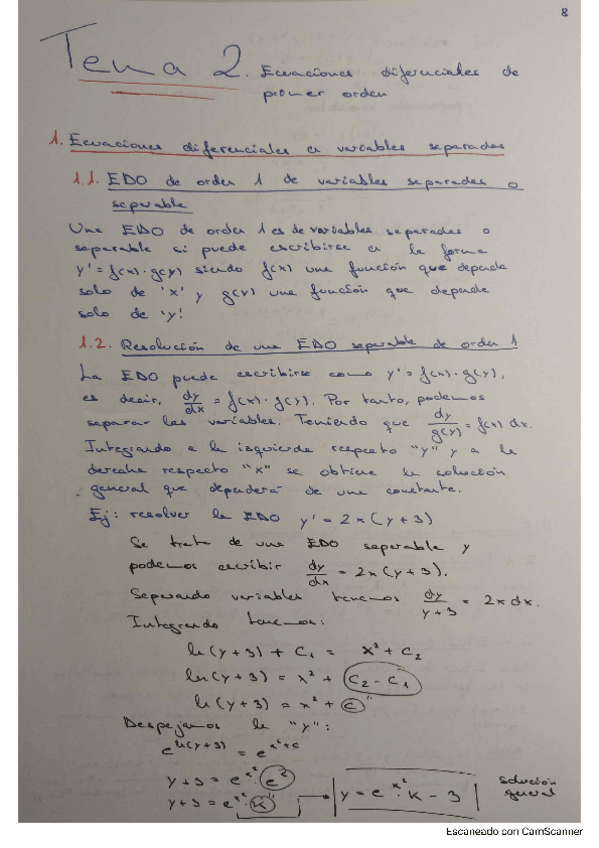 8
Tema 2. Ecuaciones diferenciales de
primer orden
1. Ecuaciones diferenciales en variables separadas
1.1. EDO de orden 1 de variables separadas o
separable
Una EDO de orden 1 es de variables separadas o
separable si puede escribirse en la forma
y' = f(x)·g(y) siendo f(x) una función que depende
solo de 'x' y g(y) una función que depende
solo de 'y'.
1.2. Resolución de una EDO separable de orden 1
La EDO puede escribirse como y' = f(x)·g(y),
es decir, dy/dx = f(x)·g(y). Por tanto, podemos
separar las variables. Teniendo que dy/g(y) = f(x) dx.
Integrando a la izquierda respecto "y" y a la
derecha respecto "x" se obtiene la solución
general que dependerá de una constante.
Ej: resolver la EDO y' = 2x(y+3)
Se trata de una EDO separable y
podemos escribir dy/dx = 2x(y+3).
Separando variables tenemos dy/y+3 = 2x dx.
Integrando tenemos:
ln(y+3) + C₁ = x² + C₂
ln(y+3) = x² + C₂ - C₁
ln(y+3) = x² + C
Despejamos la "y":
e^ln(y+3) = e^x²+c
y+3 = e^x² · e^2
y+3 = e^x² · K → y = e^x² · K - 3 solución
general
Escaneado con CamScanner